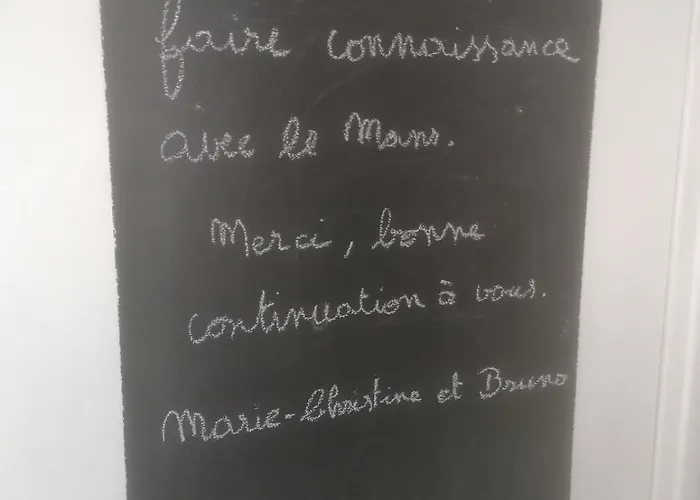 faire connaissance
avec le Mans.
Merci, bonne
continuation à vous.
Marie-Christine et Bruno